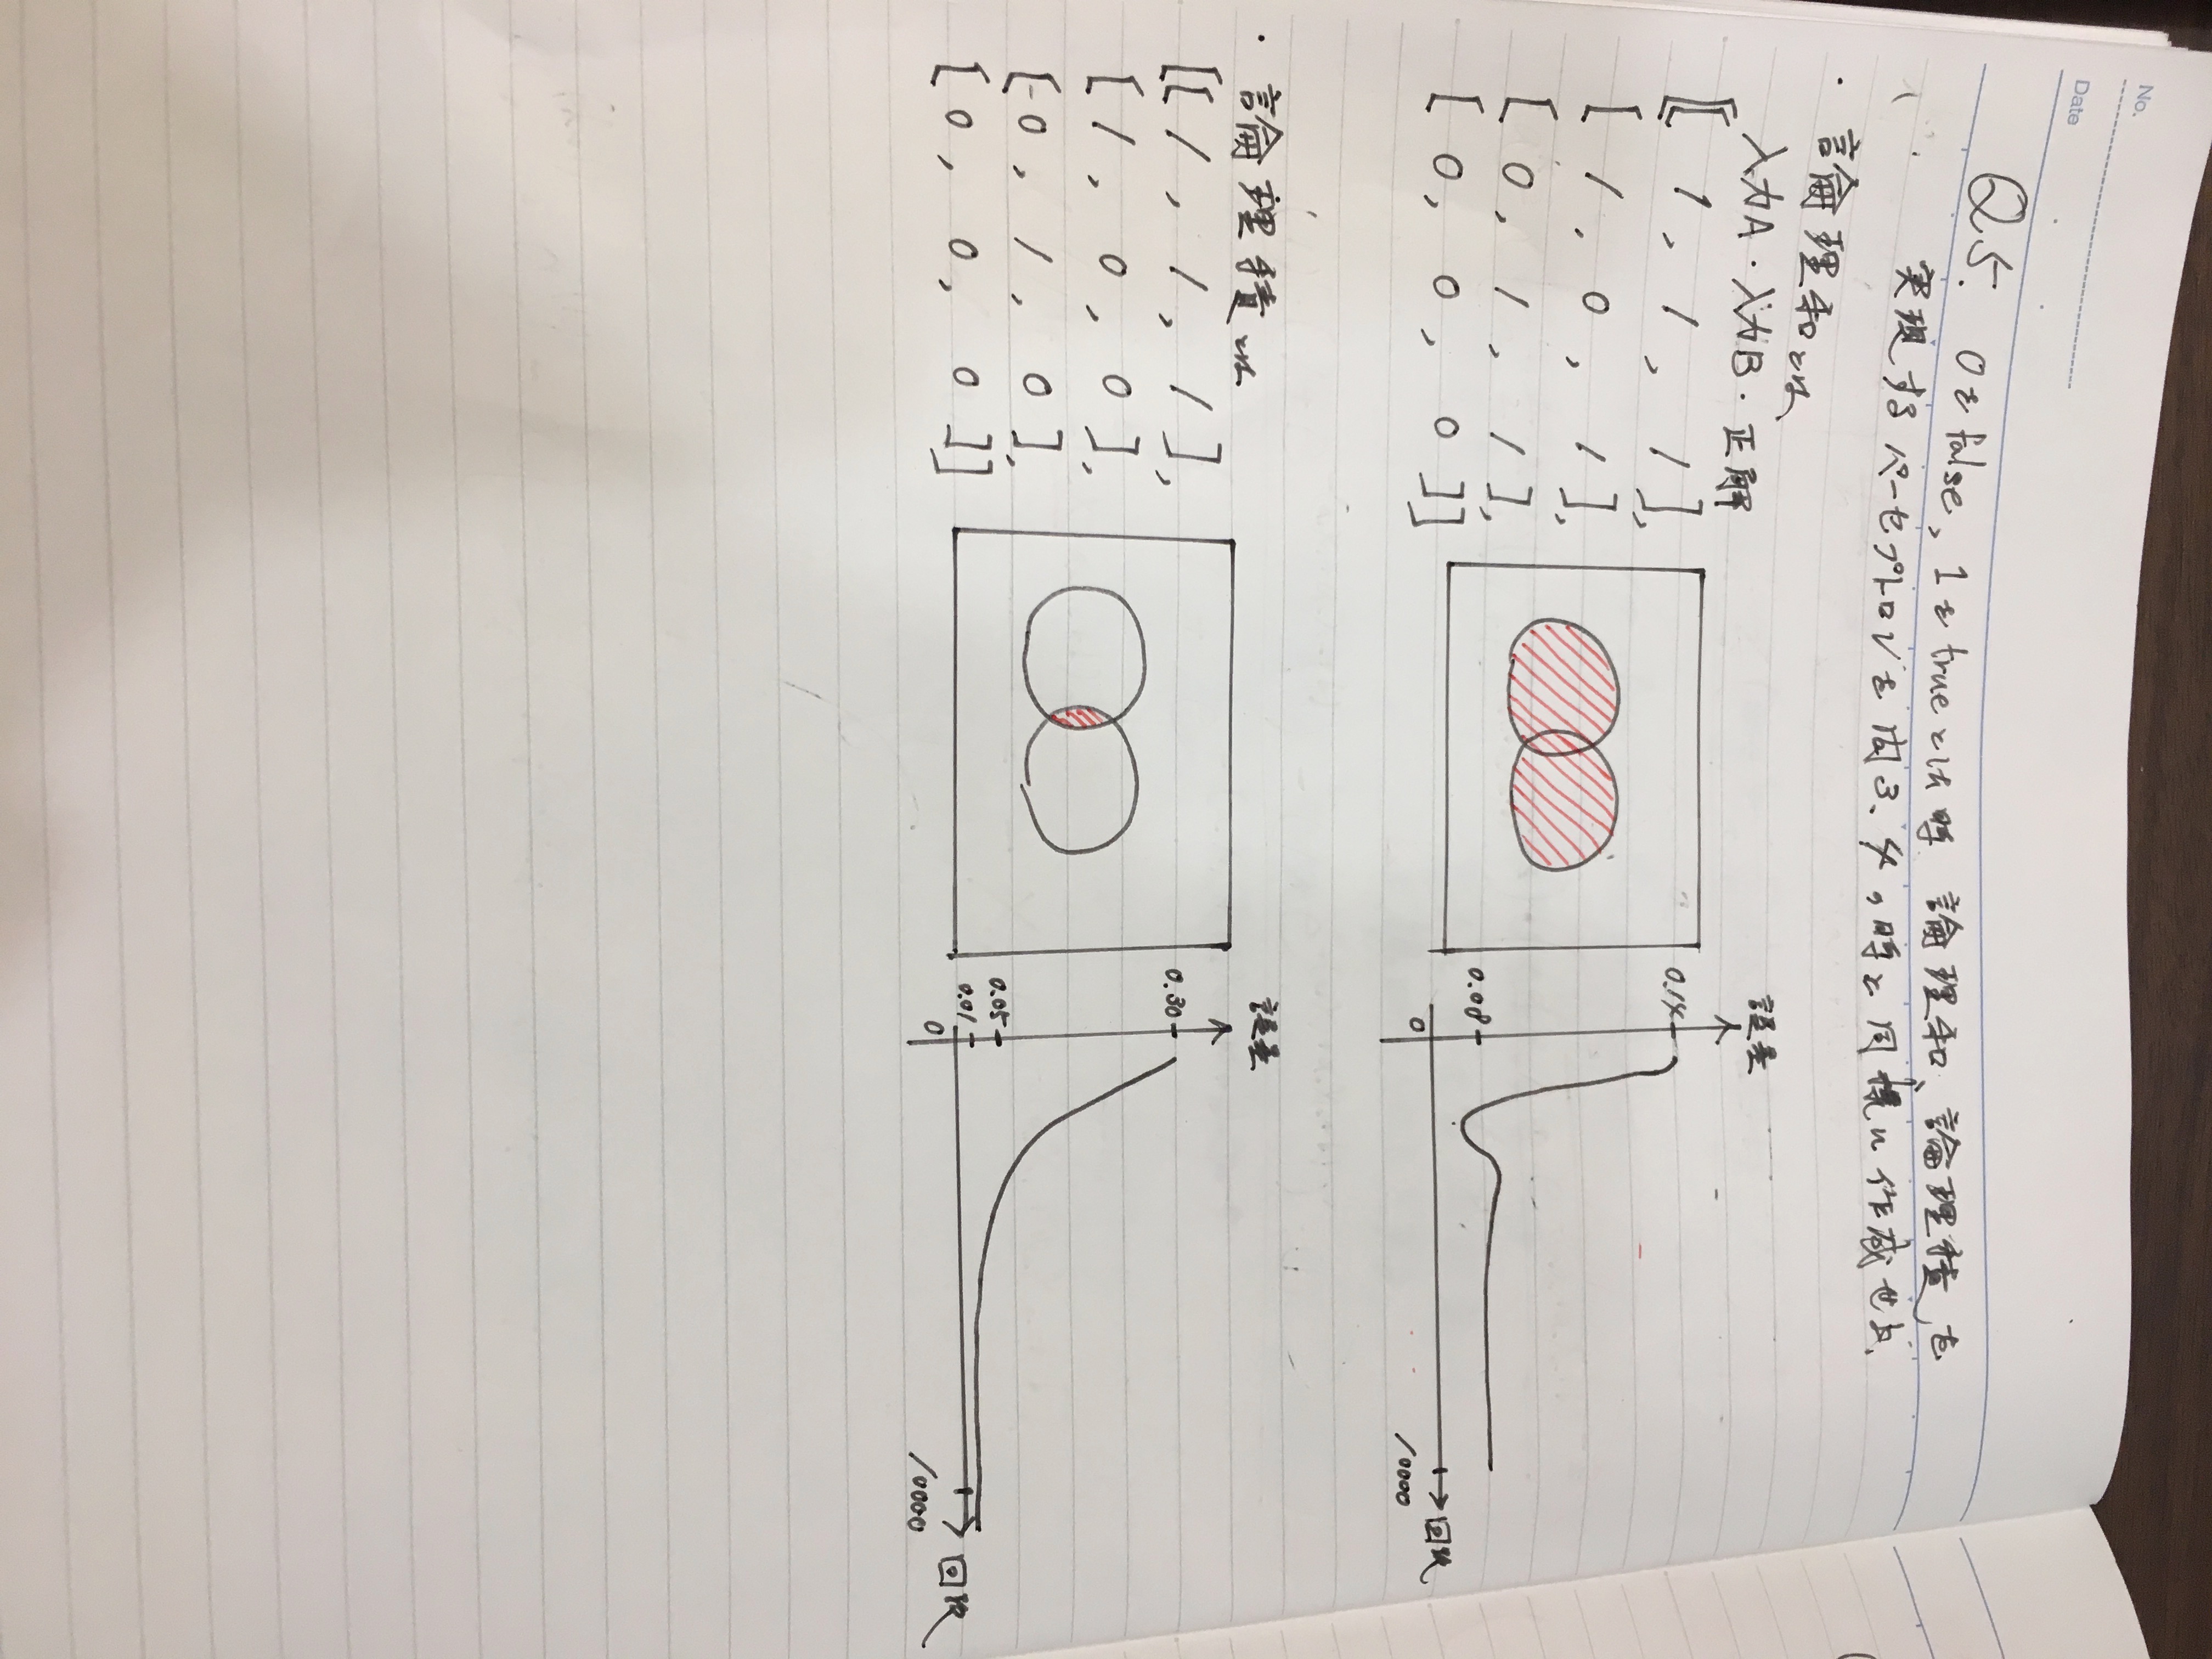 No.
Date
Q5. 0を false, 1を true とした時 論理和、論理積を
実現するパーセプトロンを Q3、4の時と同様に作成せよ
・論理和とは
入力A・入力B・正解
[[ 1 , 1 , 1 ],
[ 1 , 0 , 1 ],
[ 0 , 1 , 1 ],
[ 0 , 0 , 0 ]]
誤差
0.14
0.08
0
10000
回数
・論理積とは
[[ 1 , 1 , 1 ],
[ 1 , 0 , 0 ],
[ 0 , 1 , 0 ],
[ 0 , 0 , 0 ]]
誤差
0.30
0.05
0.01
0
10000
回数